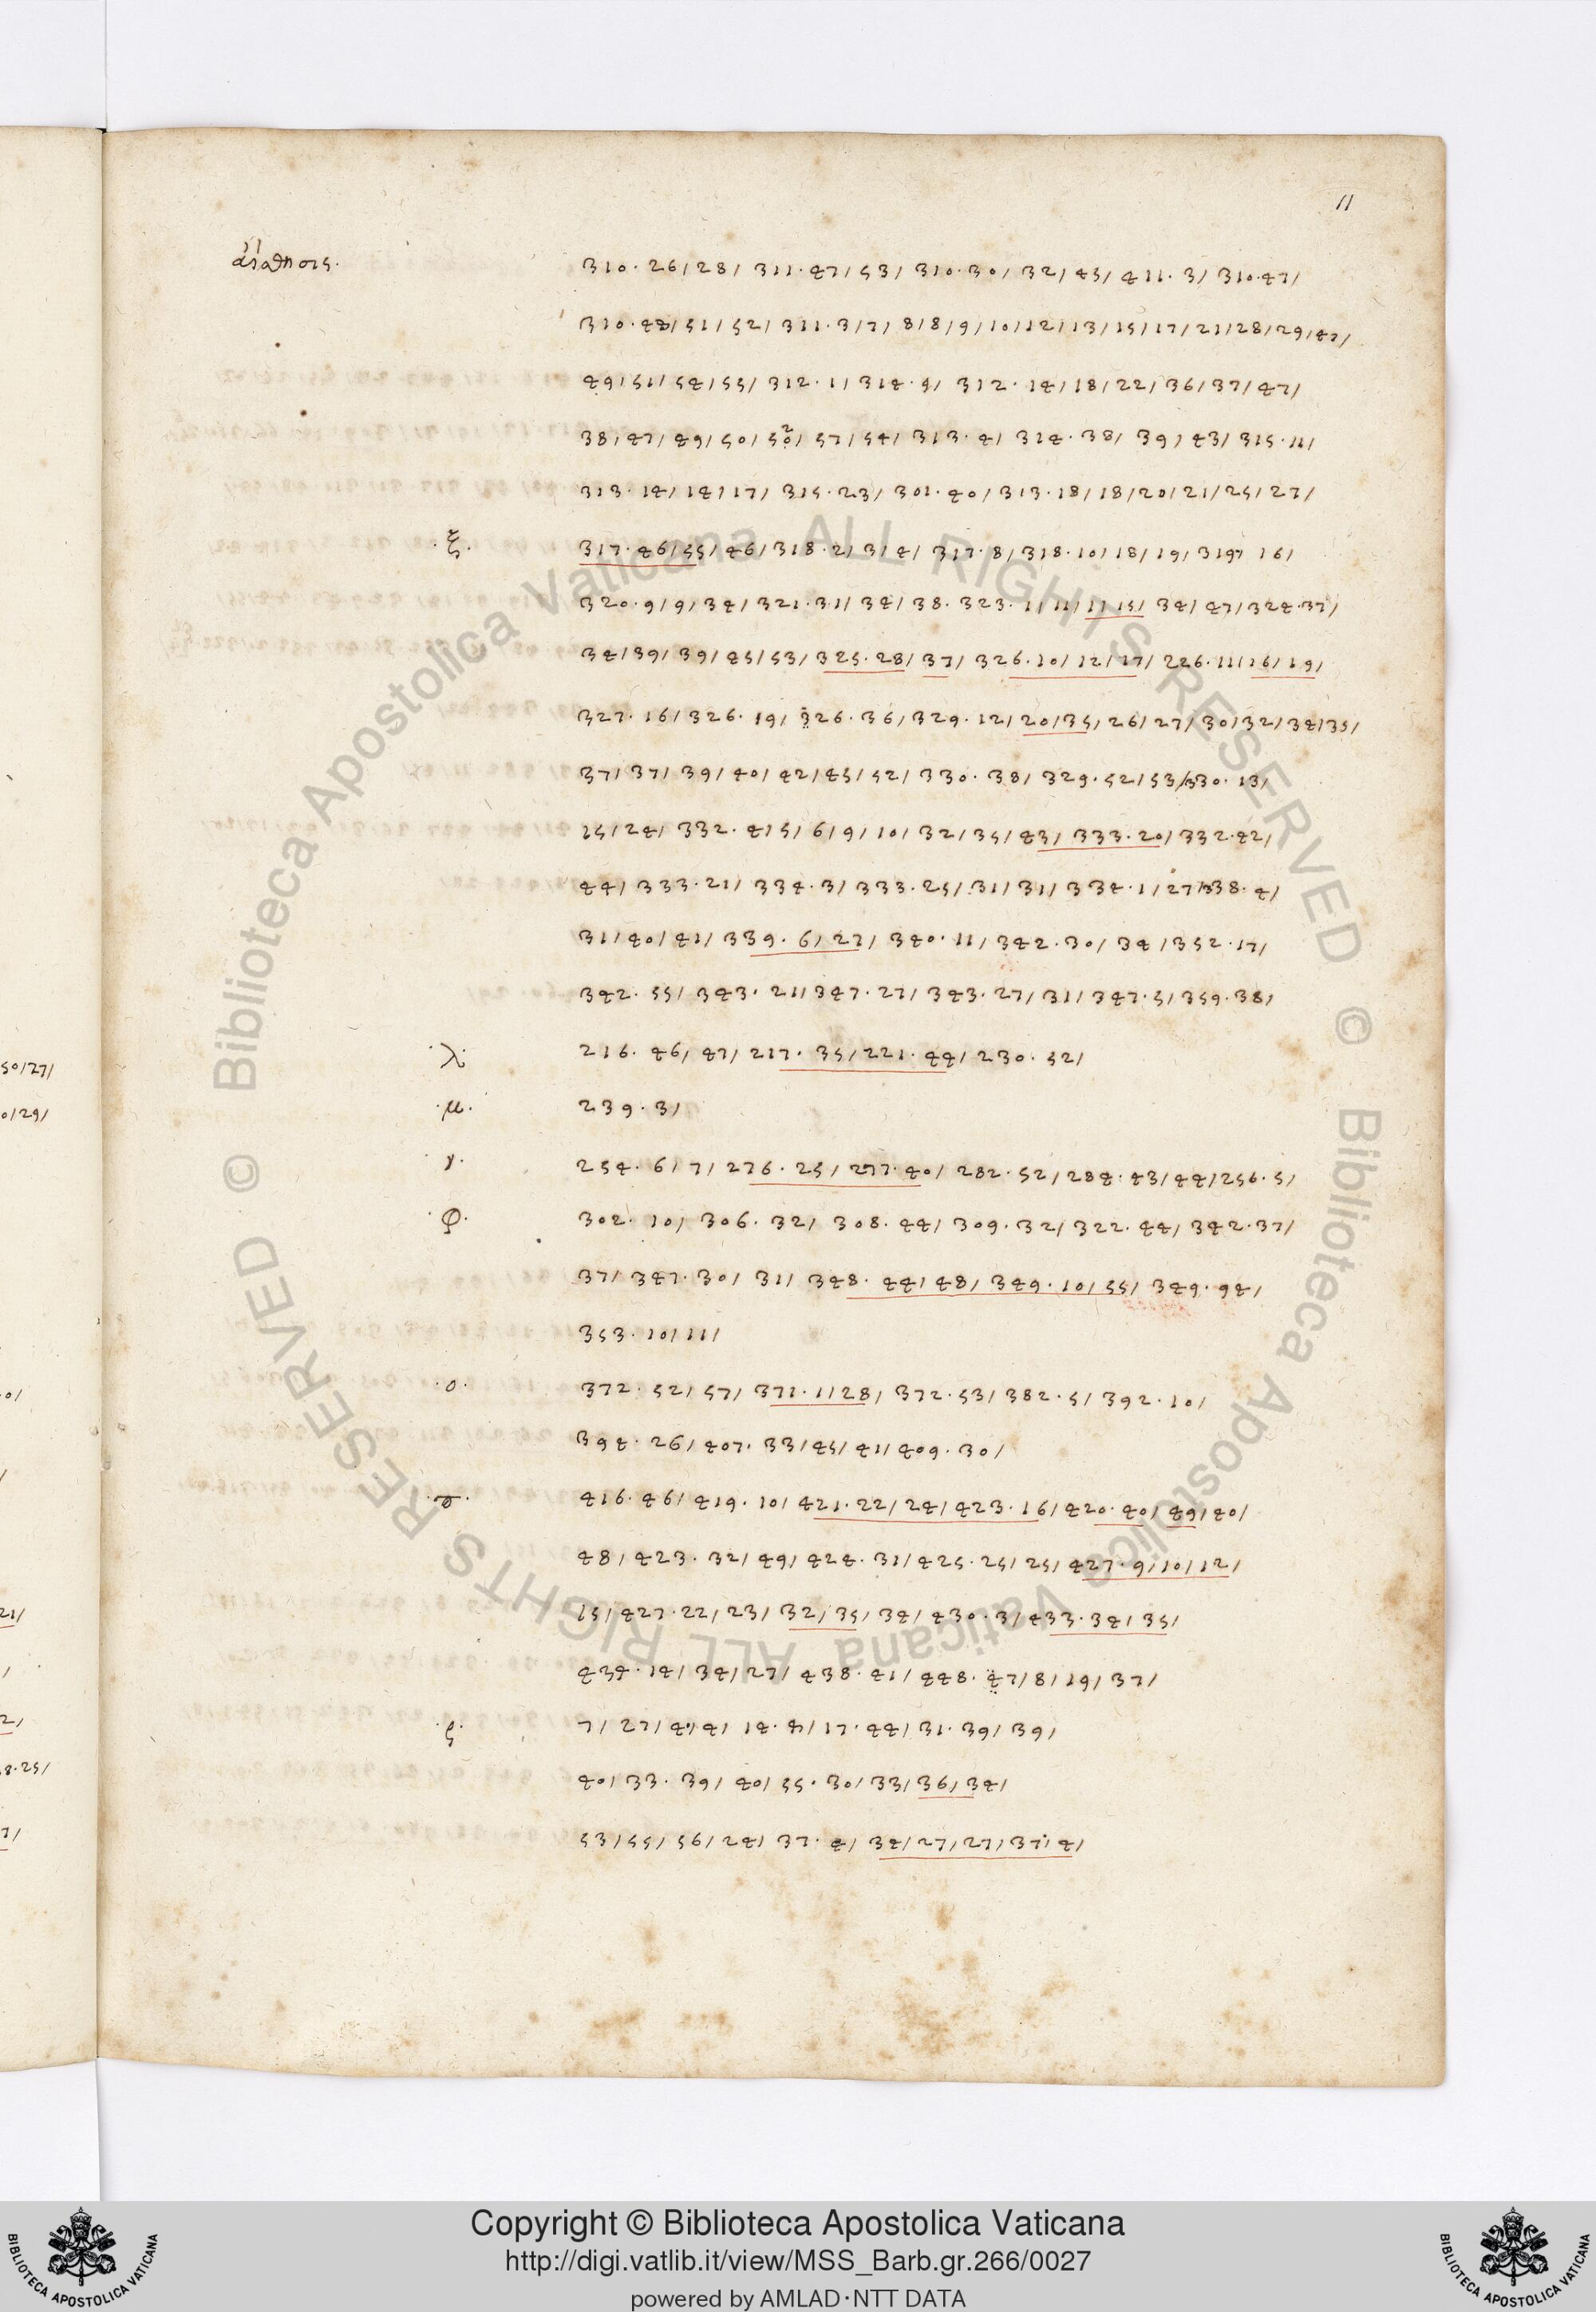 11
310 · 26/ 28/ 311 · 47/ 53/ 310 · 30/ 32/ 45/ 411 · 3/ 310 · 47/
51/ 52/ 311 · 3/ 7/ 8/ 8/ 9/ 10/ 12/ 13/ 15/ 17/ 21/ 28/ 29/ 47/
49/ 51/ 54/ 55/ 312 · 1/ 314 · 9/ 312 · 14/ 18/ 22/ 36/ 37/ 47/
38/ 47/ 49/ 50/ 57/ 54/ 313 · 4/ 314 · 38/ 39/ 43/ 315 · 11/
313 · 14/ 14/ 17/ 315 · 23/ 301 · 40/ 313 · 18/ 18/ 20/ 21/ 25/ 27/
· ξ · 317 · 46/ 55/ 46/ 318 · 2/ 3/ 4/ 317 · 8/ 318 · 10/ 18/ 19/ 319 16/
320 · 9/ 9/ 34/ 321 · 31/ 34/ 38 · 323 · 1/ 11/ 1/ 15/ 34/ 47/ 324 · 37/
34/ 39/ 39/ 45/ 53/ 325 · 28/ 37/ 326 · 10/ 12/ 17/ 226 · 11/ 16/ 19/
327 · 16/ 326 · 19/ 326 · 36/ 329 · 12/ 20/ 35/ 26/ 27/ 30/ 32/ 34/ 35/
37/ 37/ 39/ 40/ 42/ 45/ 52/ 330 · 38/ 329 · 52/ 53/ 330 · 13/
15/ 24/ 332 · 4/ 5/ 6/ 9/ 10/ 32/ 35/ 43/ 333 · 20/ 332 · 42/
44/ 333 · 21/ 334 · 3/ 333 · 25/ 31/ 31/ 334 · 1/ 27/ 338 · 4/
31/ 40/ 41/ 339 · 6/ 27/ 340 · 11/ 342 · 30/ 34/ 352 · 17/
342 · 55/ 343 · 21/ 347 · 27/ 343 · 27/ 31/ 347 · 5/ 359 · 38/
· λ · 216 · 46/ 47/ 217 · 35/ 221 · 44/ 230 · 52/
· μ · 239 · 3/
· γ · 254 · 6/ 7/ 276 · 25/ 277 · 40/ 282 · 52/ 284 · 43/ 44/ 256 · 5/
· φ · 302 · 10/ 306 · 32/ 308 · 44/ 309 · 32/ 322 · 44/ 342 · 37/
37/ 347 · 30/ 31/ 348 · 44/ 48/ 349 · 10/ 55/ 349 · 94/
353 · 10/ 11/
· ο · 372 · 52/ 57/ 371 · 1/ 28/ 372 · 53/ 382 · 5/ 392 · 10/
394 · 26/ 407 · 33/ 45/ 41/ 409 · 30/
416 · 46/ 419 · 10/ 421 · 22/ 24/ 423 · 16/ 420 · 40/ 49/ 40/
48/ 423 · 32/ 49/ 424 · 31/ 425 · 25/ 25/ 427 · 9/ 10/ 12/
15/ 427 · 22/ 23/ 32/ 35/ 34/ 430 · 3/ 433 · 34/ 35/
434 · 14/ 34/ 27/ 438 · 41/ 448 · 47/ 8/ 19/ 37/
· ς · 7/ 27/ 4/ 4/ 14 · 17 · 44/ 31 · 39/ 39/
40/ 33 · 39/ 40/ 55 · 30/ 33/ 36/ 34/
53/ 55/ 56/ 24/ 37 · 4/ 34/ 27/ 27/ 37/ 4/
50/ 27/
0/ 29/
21/
2/
8 · 25/
© Biblioteca Apostolica Vaticana ALL RIGHTS RESERVED © Biblioteca Apostolica Vaticana ALL RIGHTS RESERVED
Copyright © Biblioteca Apostolica Vaticana
http://digi.vatlib.it/view/MSS_Barb.gr.266/0027
powered by AMLAD · NTT DATA
BIBLIOTECA APOSTOLICA VATICANA
BIBLIOTECA APOSTOLICA VATICANA